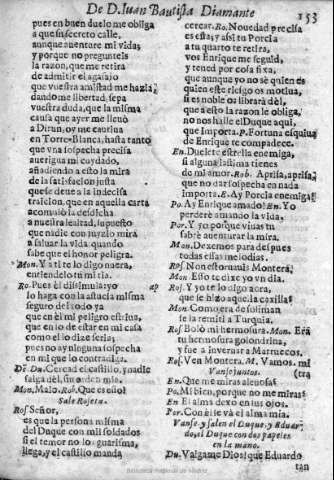 De D. Iuan Bautista Diamante
153
pues en buen duelo me obliga
a que su secreto calle,
aunque auenture mi vida;
y porque no pregunteis
la razon, que me retira
de admitir el agasajo
que vuestra amistad me hazia,
dando me libertad, sepa
vuestra duda, que la misma
causa que ayer me lleuò
a Dirun, oy me cautiua
en Torre-Blanca, hasta tanto
que vna sospecha precisa
auerigua mi cuydado,
añadiendo a esto la mira
de la satisfacion justa
que se deue a la indecisa
traicion, que en aquella carta
acomulò la desdicha
a nuestra lealtad, supuesto
que nadie con juyzio mira
a saluar la vida, quando
sabe que el honor peligra.
Mon. Y a ti te lo digo nuera,
entiendelo tu mi tia.
Ro. Pues el dissimula: yo ap
lo haga con la astucia misma
seguro de todo ya
que en èl mi peligro estriua,
que en lo de estar en mi casa
como el lo dize seria;
pues no ay ninguna sospecha
en mi que lo contradiga.
Dẽ. Du. Cercad el castillo, y nadie
salga dèl, sin orden mia.
Mon. Malo. Rob. Que es esto?
Sale Rojeta.
Ros. Señor,
es que la persona misma
del Duque con mil soldados
si el temor no los guarisma,
llega, y el castillo manda
cercar. Ro. Nouedad precisa
es esta; y assi tu Porcia
a tu quarto te retira,
vos Enrique me seguid,
y tened por cosa fixa,
que aunque yo no sè quien es
quien este riesgo os motiua,
si es noble os librarà dèl,
que a esto la razon le obliga,
no nos halle el Duque aqui,
que importa. P. Fortuna esquiua
de Enrique te compadece.
En. Duelete estrella enemiga,
si alguna lastima tienes
de mi amor. Rob. Aprisa, aprisa,
que no dar sospecha en nada
importa. E. Ay Porcia enemiga!
Po. Ay Enrique amado! En. Yo
perderè amando la vida,
Por. Y yo porque viuas tu
sabrè auenturar la mira.
Mon. Dexemos para despues
todas essas melodias.
Ros. Non estornuais Montera,
Mon. Esso te dize yo vn dia.
Ros. Y yo te lo digo aora,
que se hizo aquel. la caxilla?
Mon. Como era de soliman
se la remiti a Turquia.
Ros. Bolò mi hermosura. Mon. Era
tu hermosura golondrina,
y fue a inuernar a Marruecos.
Ros. Ven Montera. M. Vamos. mi
Vanse juntos. (tra
En. Que me miras aleuosa?
Po. Mi bien, porque no me miras?
En. El alma dexo en tus ojos.
Por. Con èl se và el alma mia.
Vanse y salen el Duque, y Eduar
do, el Duque con dos papeles
en la mano.
Du. Valgame Dios! que Eduardo
tan
Biblioteca Nacional de España